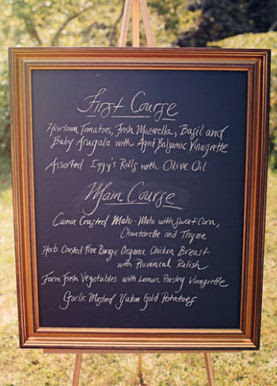 First Course
Heirloom Tomatoes, Fresh Mozzarella, Basil and
Baby Arugula with Aged Balsamic Vinagrette
Assorted Iggy's Rolls with Olive Oil
Main Course
Cumin Crusted Mahi-Mahi with Sweet Corn,
Chanterelle and Thyme
Herb Crusted Free Range Organic Chicken Breast
with Provencal Relish
Farm Fresh Vegetables with Lemon Parsley Vinagrette
Garlic Mashed Yukon Gold Potatoes